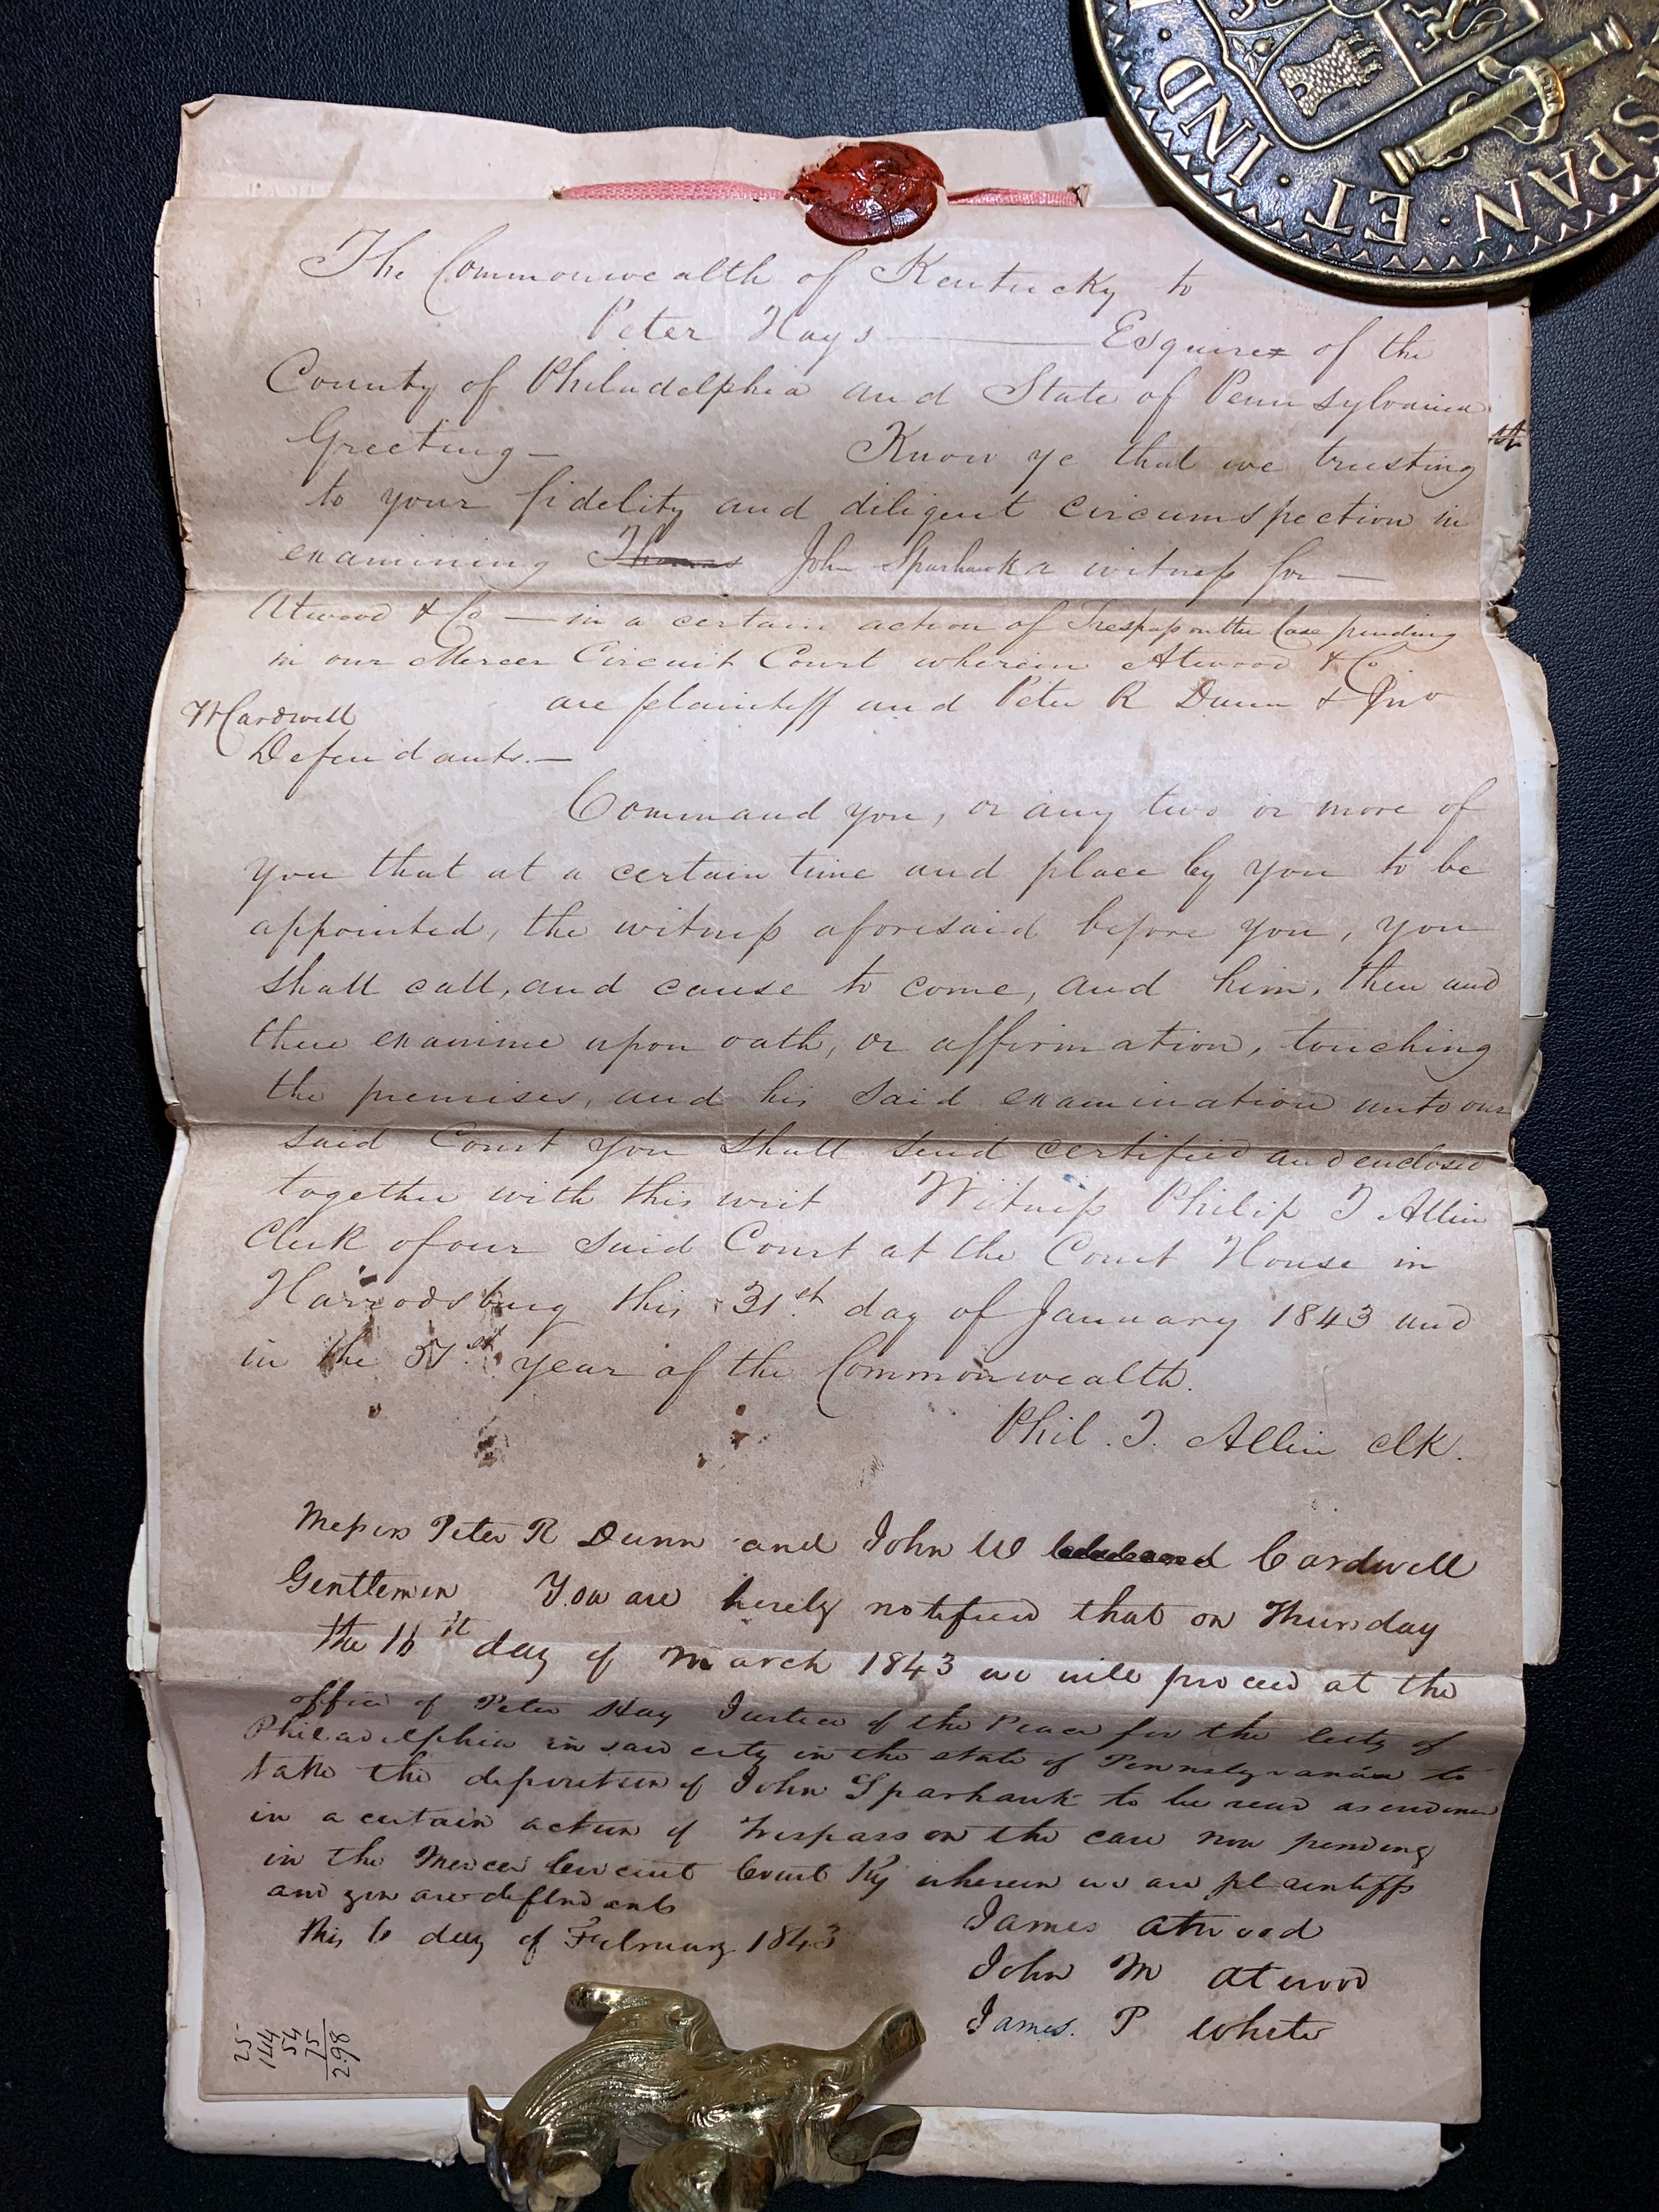 · IND · ET · SPAN
The Commonwealth of Kentucky to
Peter Hays ——— Esquire of the
County of Philadelphia and State of Pennsylvania
Greeting — Know ye that we trusting
to your fidelity and diligent circumspection in
examining Thomas John Sparhawk a witness for —
Atwood & Co — in a certain action of Trespass on the Case pending
in our Mercer Circuit Court wherein Atwood & Co
are plaintiff and Peter R Dunn & Jno
W Cardwell
Defendants. —
Command you, or any two or more of
you that at a certain time and place by you to be
appointed, the witness aforesaid before you, you
shall call, and cause to come, and him, then and
there examine upon oath, or affirmation, touching
the premises, and his said examination unto our
said Court you shall send certified and enclosed
together with this writ Witness Philip T Allin
Clerk of our said Court at the Court House in
Harrodsburg this 31st day of January 1843 and
in the 51st year of the Commonwealth.
Phil. T. Allin clk.
Messrs Peter R Dunn and John W Cardwell
Gentlemen You are hereby notified that on Thursday
the 16th day of March 1843 we will proceed at the
office of Peter Hay Justice of the Peace for the City of
Philadelphia in said city in the state of Pennsylvania to
take the deposition of John Sparhawk to be read as evidence
in a certain action of Trespass on the case now pending
in the Mercer Circuit Court Ky wherein we are plaintiffs
and you are defendants
this 6 day of February 1843
James Atwood
John M Atwood
James. P White
25
144
54
75
2.98